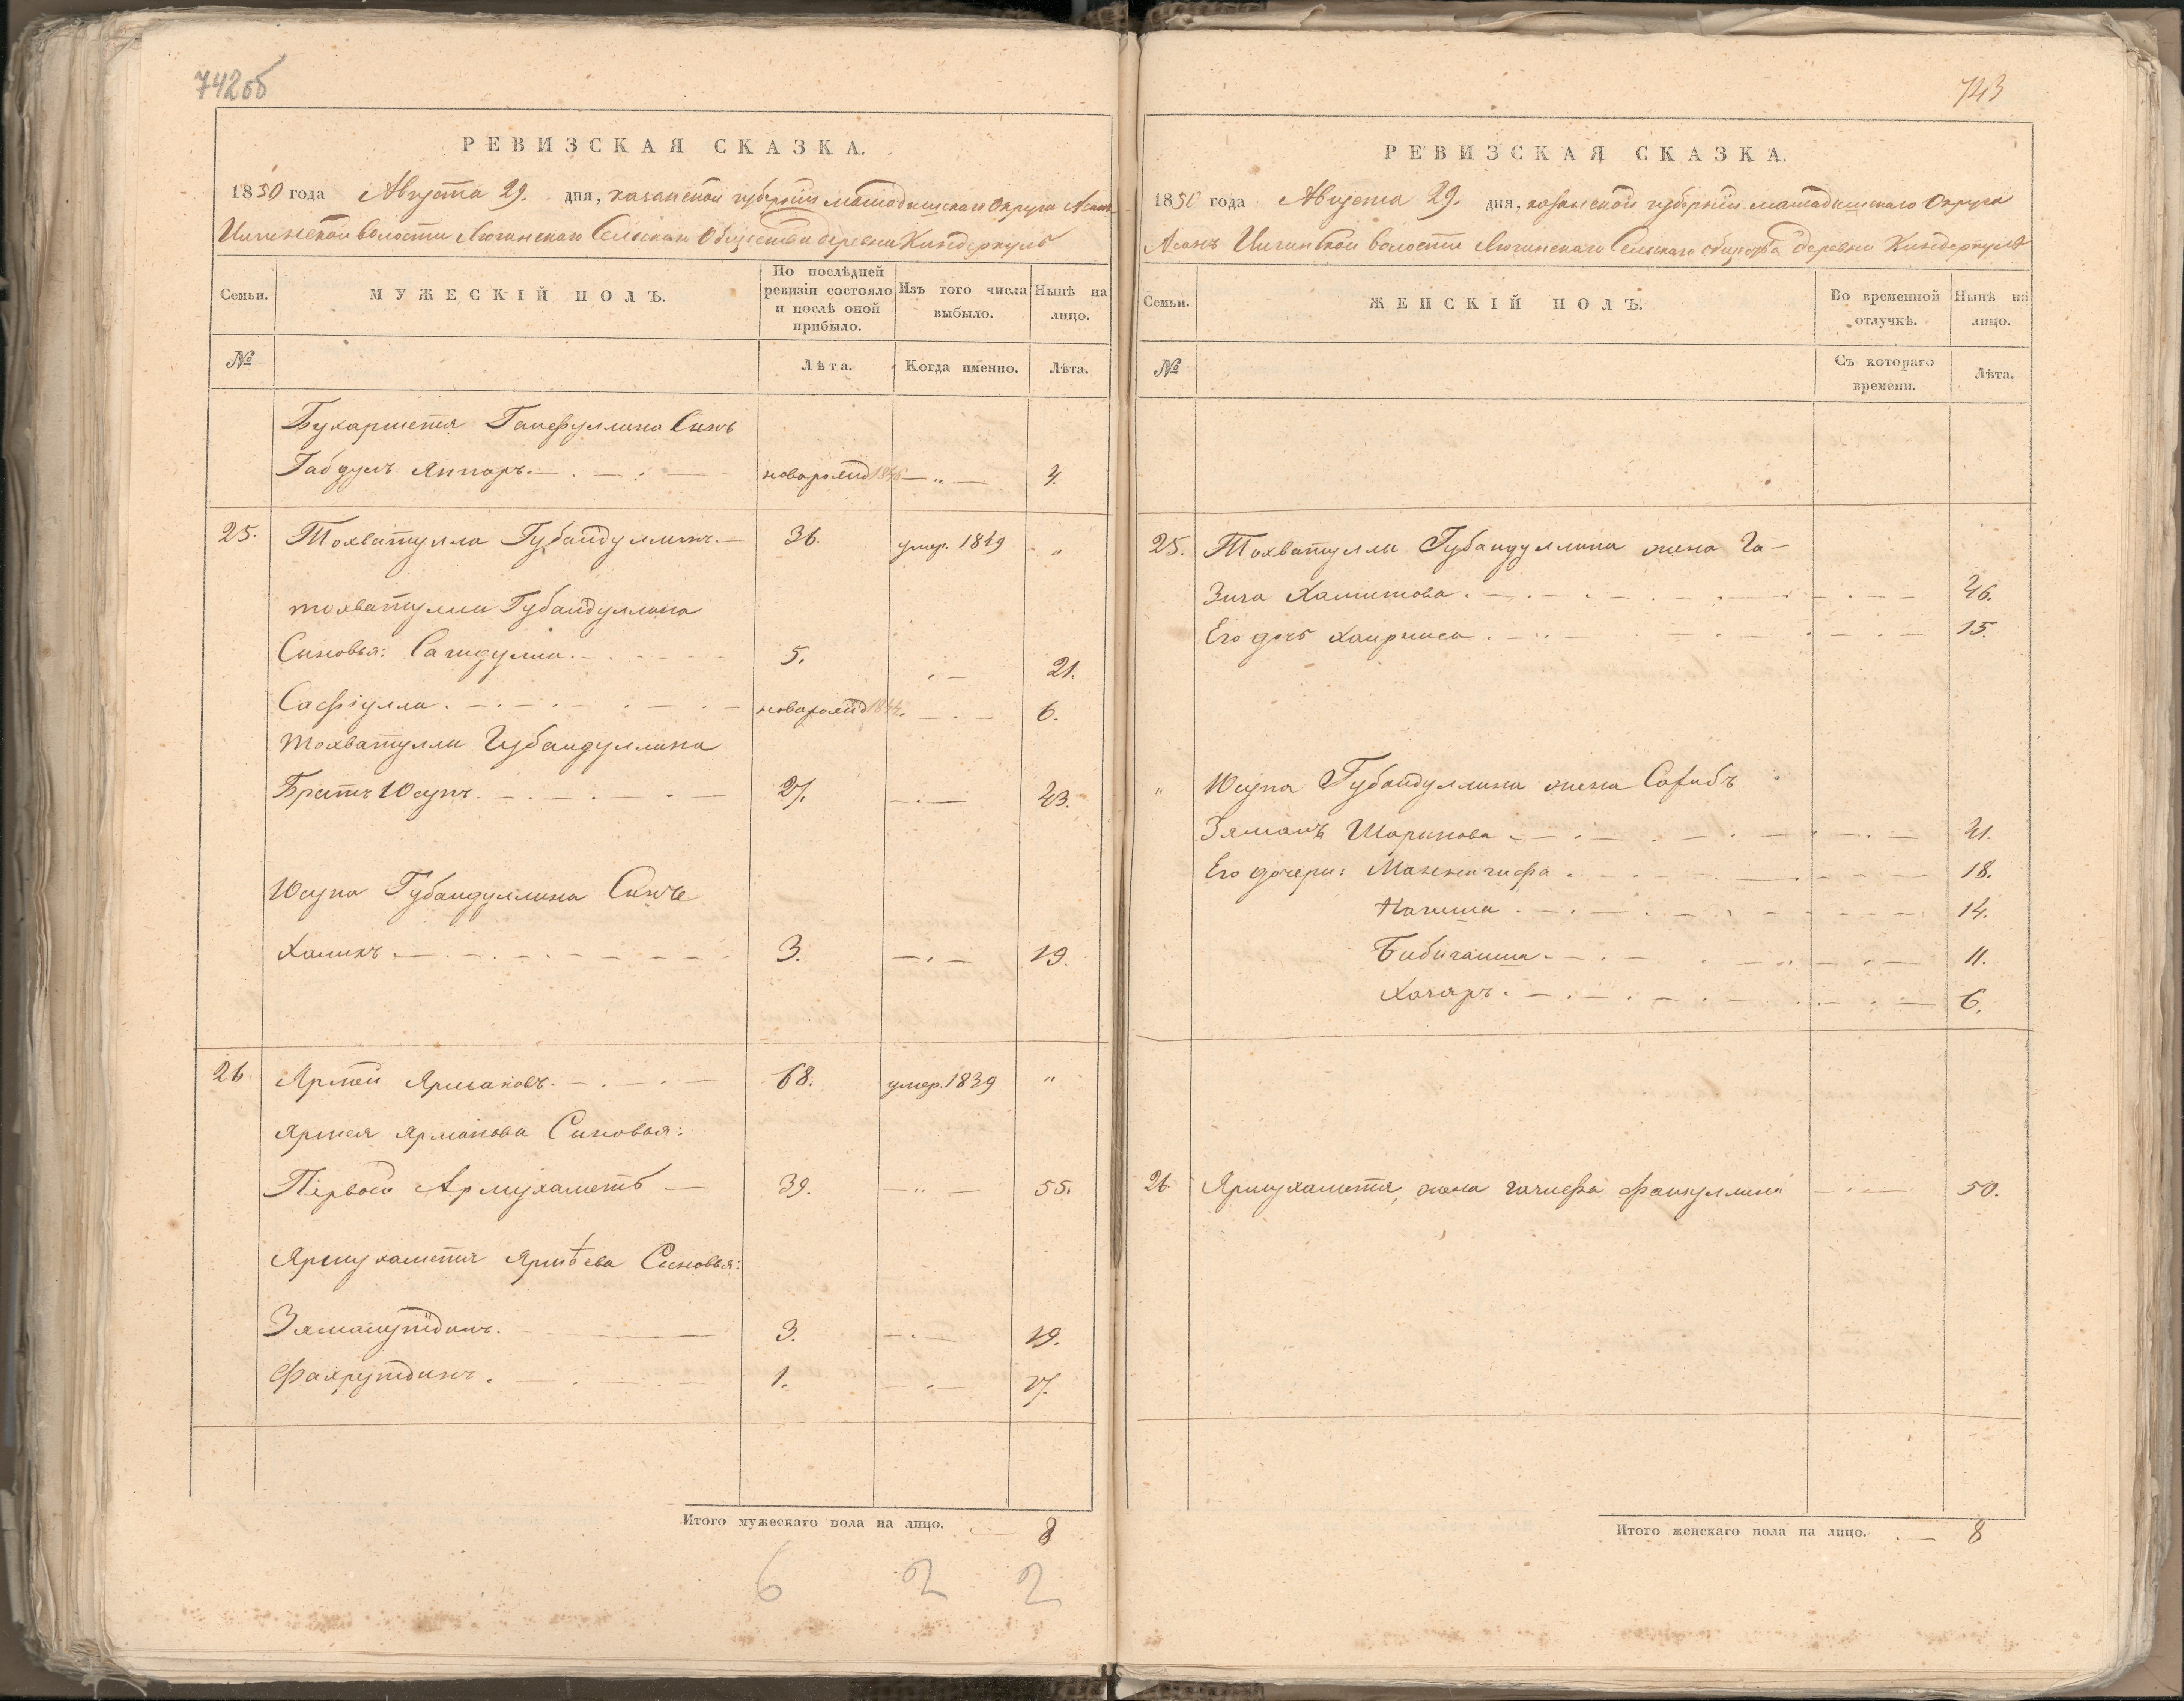 742об
РЕВИЗСКАЯ СКАЗКА.
1850 года Августа 29. дня, казанской губерніи мамадышскаго Округа Асанъ
Илгинской волости Лючинскаго Сельскаго Общества деревни Киндеркуль
Семьи.
МУЖЕСКІЙ ПОЛЪ.
По послѣдней ревизіи состояло и послѣ оной прибыло.
Изъ того числа выбыло.
Нынѣ на лицо.
№
Лѣта.
Когда именно.
Лѣта.
Бухарметя Ганефуллина Сынъ
Габдулъ Яппаръ. новорожд 1846 4.
25. Тохватулла Губайдуллинъ 36. умер. 1849 „
тохватуллы Губайдуллина
Сыновья: Сагидулла. 5. 21.
Сафіулла. новорожд 1844. 6.
Тохватуллы Губайдуллина
Братъ Юсупъ. 27. 43.
Юсупа Губайдуллина Сынъ
Халикъ 3. 19.
26. Ярмѣй Ярмаковъ. 68. умер. 1839 „
Ярмея Ярмакова Сыновья:
Первой Ярмухаметъ 39. 55.
Ярмухаметя Ярмѣева Сыновья:
Зямалутдинъ. 3. 19.
Фахрутдинъ. 1. 17.
Итого мужескаго пола на лицо. 8
6 2 2
743
РЕВИЗСКАЯ СКАЗКА.
1850 года Августа 29. дня, казанской губерніи мамадышскаго Округа
Асанъ Илгинской волости Лючинскаго Сельскаго общества деревни Киндеркуль
Семьи.
ЖЕНСКІЙ ПОЛЪ.
Во временной отлучкѣ.
Нынѣ на лицо.
№
Съ котораго времени.
Лѣта.
25. Тохватуллы Губайдуллина жена Га-
Зиза Хамитова. 46.
Его дочь Хаирниса. 15.
„ Юсупа Губайдуллина жена Сагибъ
Зяманъ Шарыпова 41.
Его дочери: 18.
Нагима. 14.
Бибигаиша. 11.
6.
26. Ярмухаметя жена Файзуллина 50.
Итого женскаго пола на лицо. 8